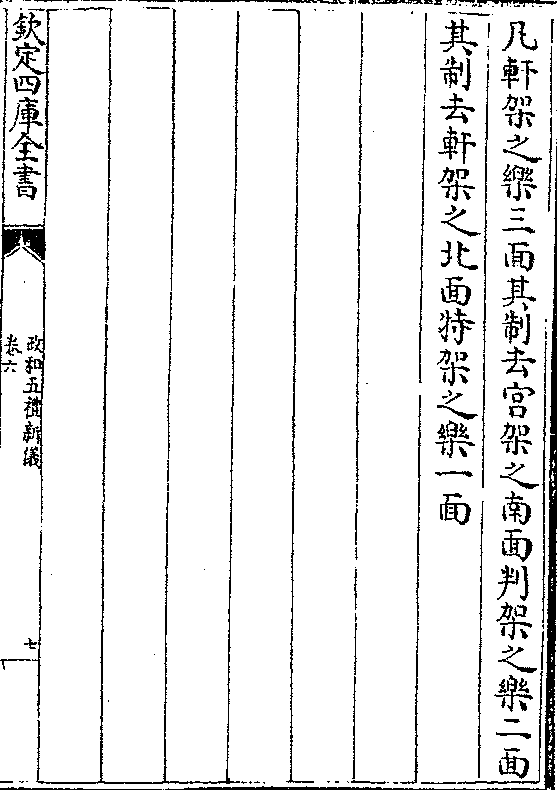 凡軒架之樂三面其制去宫架之南面判架之樂二面
其制去軒架之北面特架之樂一面
欽定四庫全書
政和五禮新儀
卷六
七